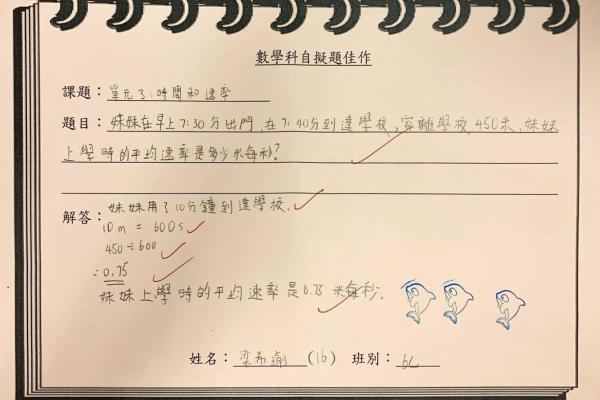 數學科自擬題佳作
課題：單元3：時間和速率
題目：妹妹在早上7:30分出門，在7:40分到達學校，家離學校450米，妹妹
上學時的平均速率是多少米每秒？
解答：妹妹用了10分鐘到達學校。
10m = 600s
450÷600
=0.75
妹妹上學時的平均速率是0.75米每秒。
姓名：梁希瑜 (16) 班別：6C